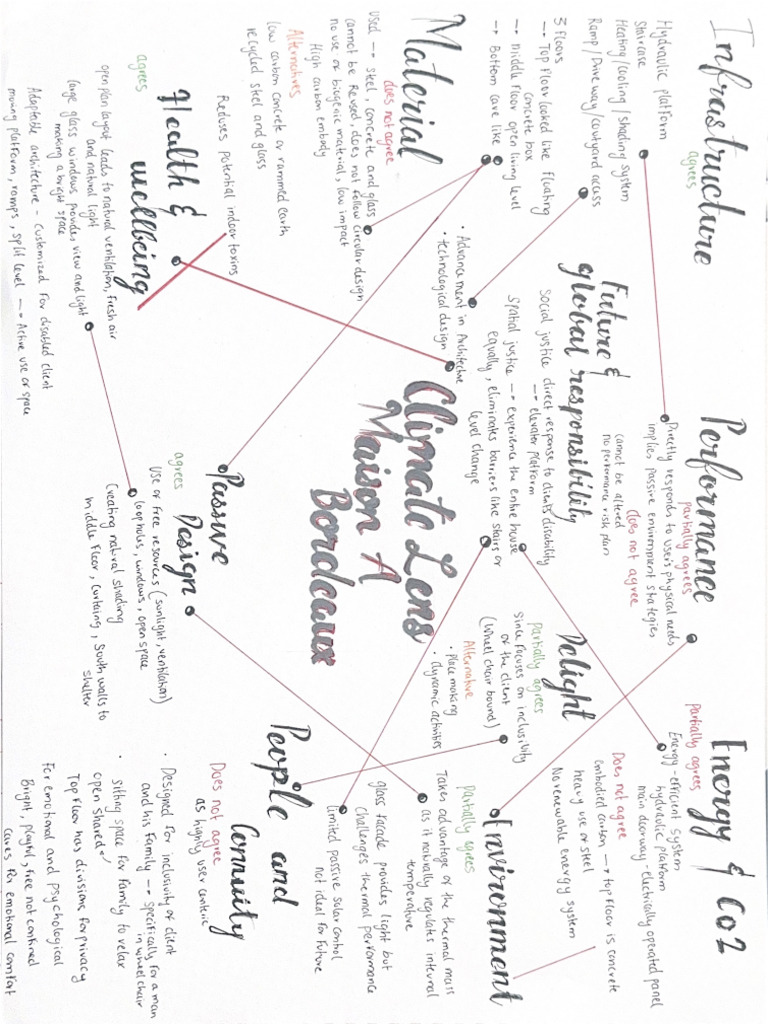 Infrastructure
agrees
Hydraulic platform
Staircase
Heating/cooling/shading system
Ramp/Drive way/courtyard access
3 floors
→ Top floor looked like floating
concrete box
→ middle floor open living level
→ Bottom cave like
Performance
partially agrees
Directly responds to users physical needs
implies passive environment strategies
does not agree
cannot be altered
no performance risk plan
Energy & Co2
partially agrees
Energy-efficient system
hydraulic platform
main doorway-electrically operated panel
Does not agree
Embodied carbon → top floor is concrete
heavy use of steel
No renewable energy system
Future &
global responsibility
Social justice direct response to clients disability
→ elevator platform
Spatial justice → experience the entire house
equally, eliminates barriers like stairs or
level change
• Advancement in Architecture
• technological design
Delight
partially agrees
since focuses on inclusivity
of the client
(wheel chair bound)
Alternative
• Place making
• dynamic activities
Environment
partially agrees
Takes advantage of the thermal mass
as it naturally regulates internal
temperature
glass facade provides light but
challenges thermal performance
limited passive solar control
not ideal for future
Material
does not agree
used → steel, concrete and glass
cannot be Reused, does not follow circular design
no use of biogenic material, low impact
High carbon embody
Alternatives
low carbon concrete or rammed earth
recycled steel and glass
Climate Lens
Maison A
Bordeaux
Health &
wellbeing
Reduces potential indoor toxins
agrees
open plan layout leads to natural ventilation, fresh air
and natural light
large glass windows provides view and light
making a bright space
Adaptable architecture - customized for disabled client
moving platform, ramps, split level → Active use of space
Passive
Design
agrees
Use of free resources (sunlight, ventilation)
loopholes, windows, open space
Creating natural shading
middle floor, curtains, south walls to
shelter
People and
Comnuity
Does not agree
as highly user centeric
• Designed for inclusivity of client
and his family → specifically for a man
in wheel chair
• sitting space for family to relax
open shared
Top floor has divisions for privacy
For emotional and psychological
Bright, playful, free not confined
cares for emotional comfort